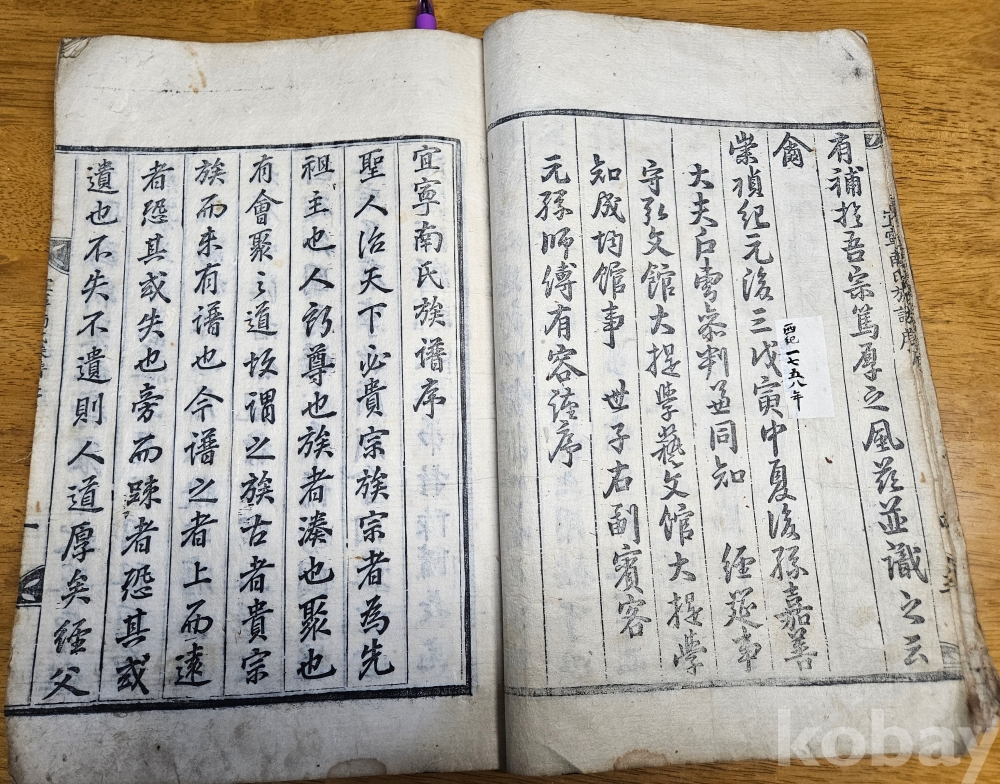 有補於吾宗篤厚之風茲並識之云
爾
崇禎紀元後三戊寅中夏後孫嘉善
大夫戶曹參判兼同知 經筵事
守弘文館大提學藝文館大提學
知成均館事 世子右副賓客
元孫師傅有容謹序
西紀一七五八年
宜寧南氏族譜序
聖人治天下必貴宗族宗者為先
祖主也人所尊也族者湊也聚也
有會聚之道故謂之族古者貴宗
族而来有譜也今譜之者上而遠
者恐其或失也旁而踈者恐其或
遺也不失不遺則人道厚矣經父
kobay